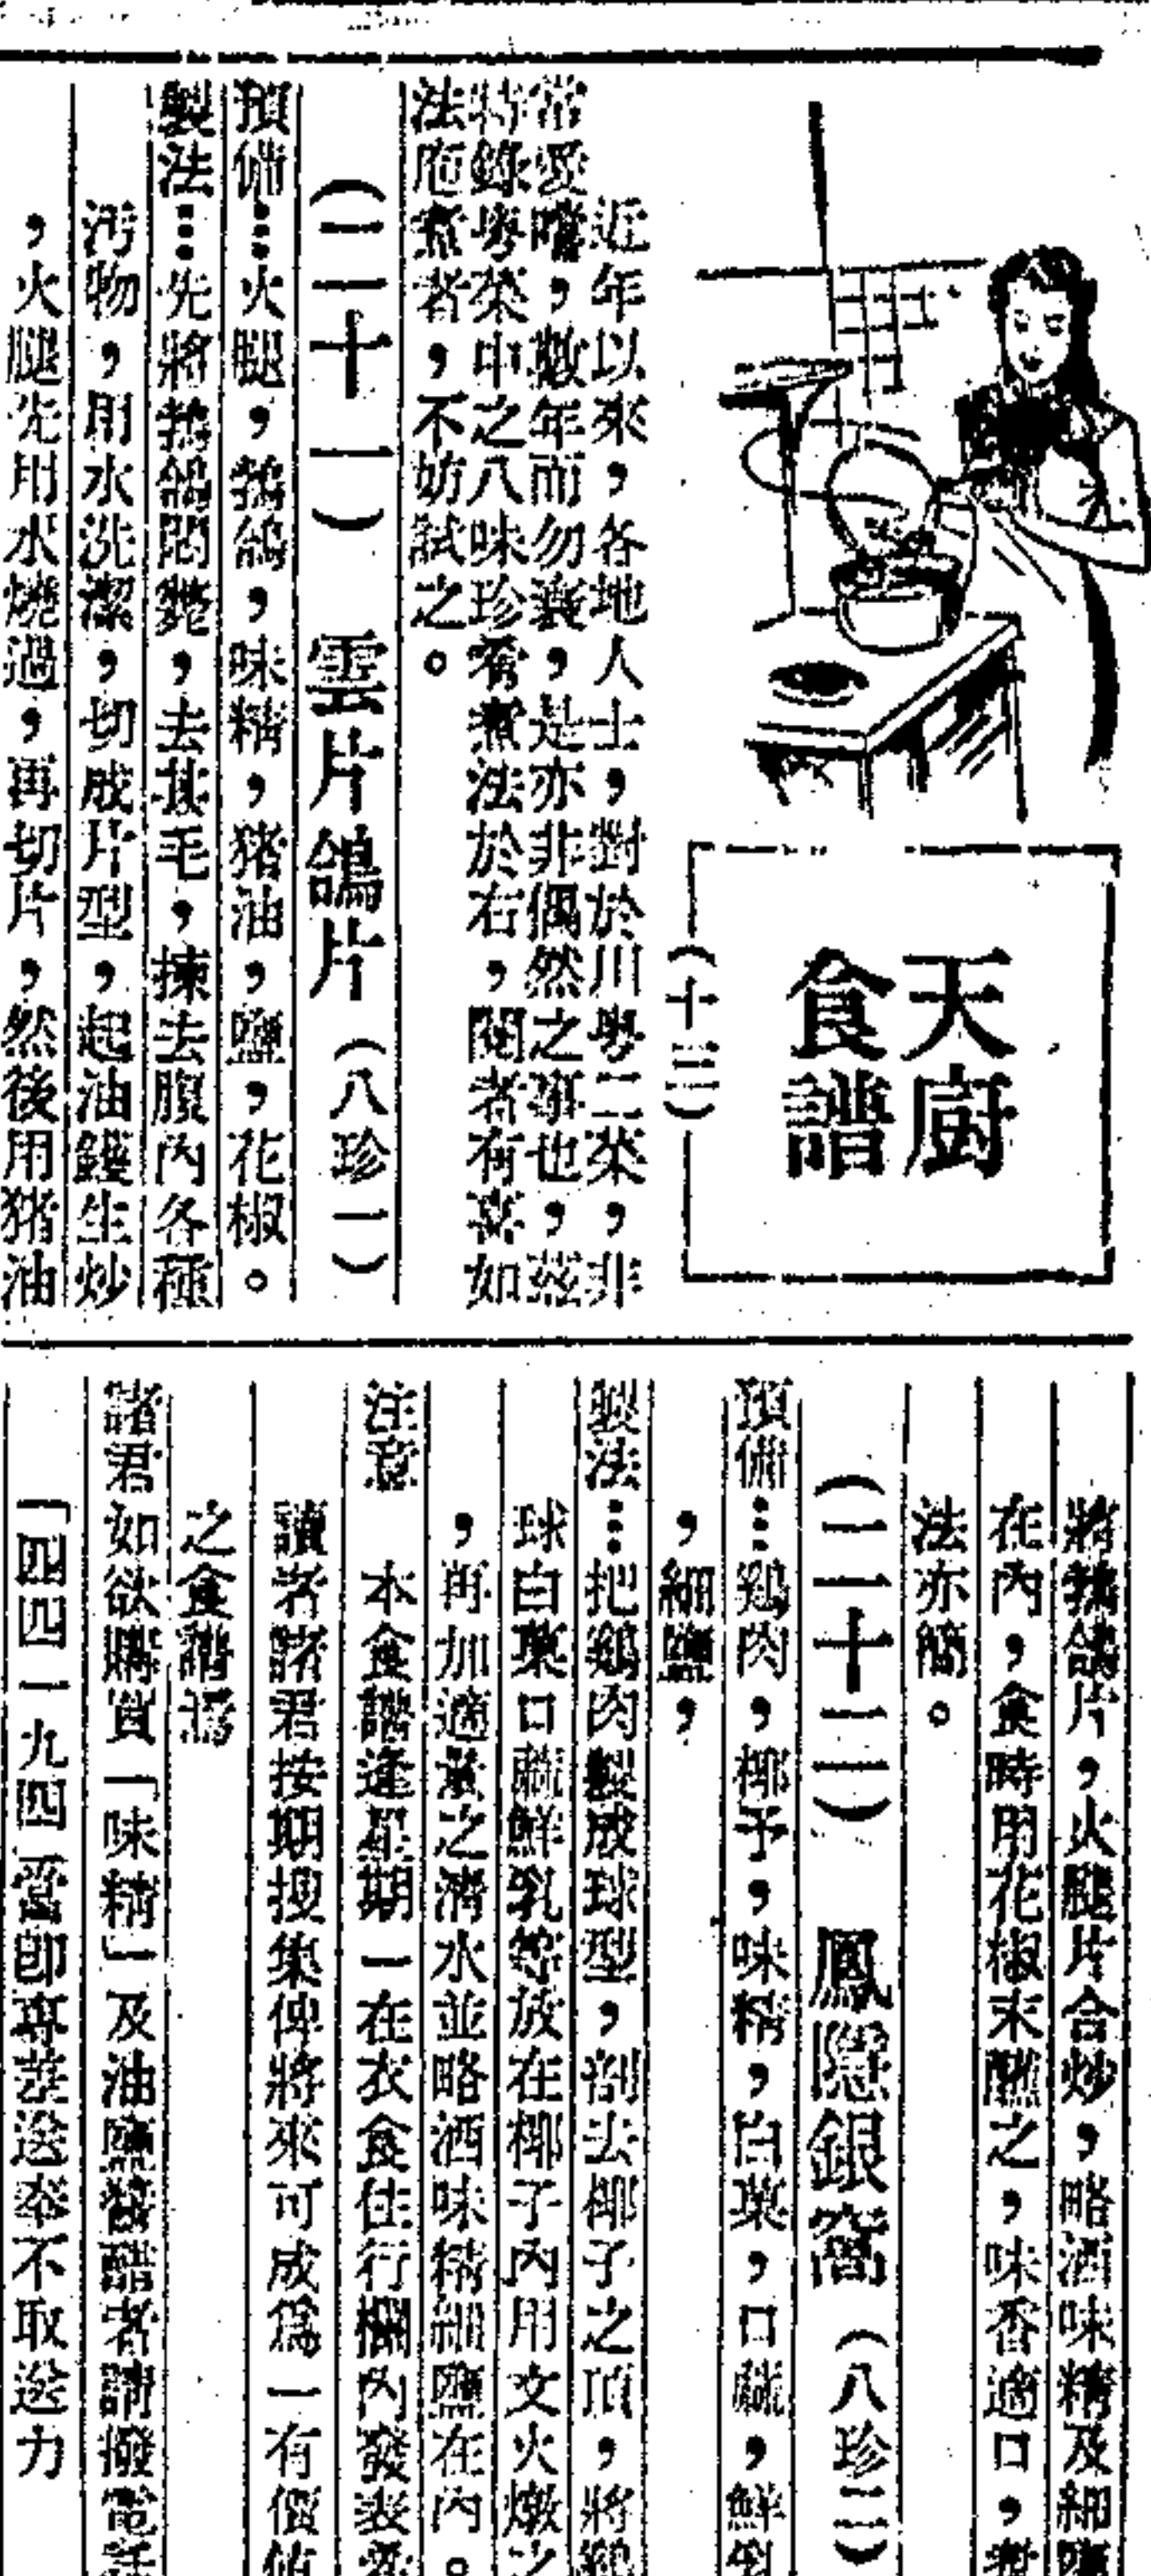 天廚
食譜
（十三）
近年以來，各地人士，對於川粵二菜，非
常愛嚐，數年而勿衰，是亦非偶然之事也，茲
特錄粵菜中之八味珍肴煮法於右，閱者有喜如
法庖煮者，不妨試之。
（二十一）　雲片鴿片（八珍一）
預備…火腿，鵓鴿，味精，猪油，鹽，花椒。
製法…先將鵓鴿悶斃，去其毛，揀去腹內各種
汚物，用水洗潔，切成片型，起油鑊生炒
，火腿先用水燒過，再切片，然後用猪油
將鵓鴿片，火腿片合炒，略酒味精及細鹽
在內，食時用花椒末蘸之，味香適口，煮
法亦簡。
（二十二）　鳳隱銀窩（八珍二）
預備…鷄肉，椰予，味精，白菓，口蘑，鮮
，細鹽，
製法…把鷄肉製成球型，剖去椰子之頂，將鷄
球白菓口蘑鮮乳等放在椰子內用文火燉之
，再加適量之淸水並略酒味精細鹽在內。
注意　本食譜逢星期一在衣食住行欄內發表
讀者諸君按期搜集俾將來可成爲一有價値
之食譜焉
諸君如欲購買「味精」及油鹽醬醋者請撥電話
「四四一九四」當卽專差送奉不取送力